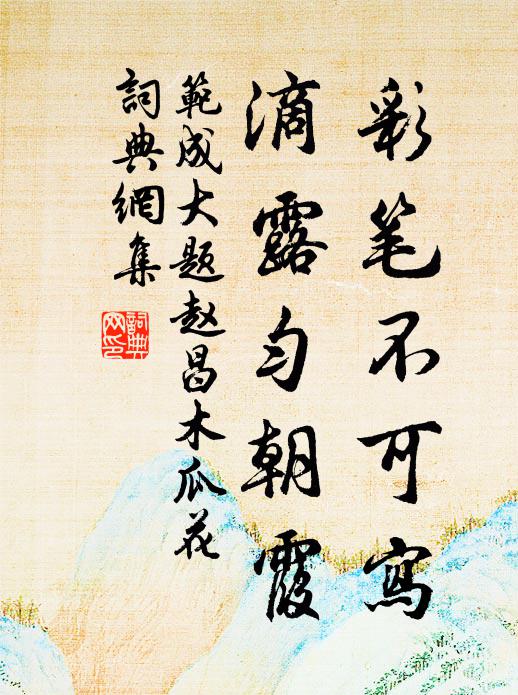 彩笔不可寫
滴露匀朝霞
範成大题赵昌木瓜花
詞典網集
詞典
网印